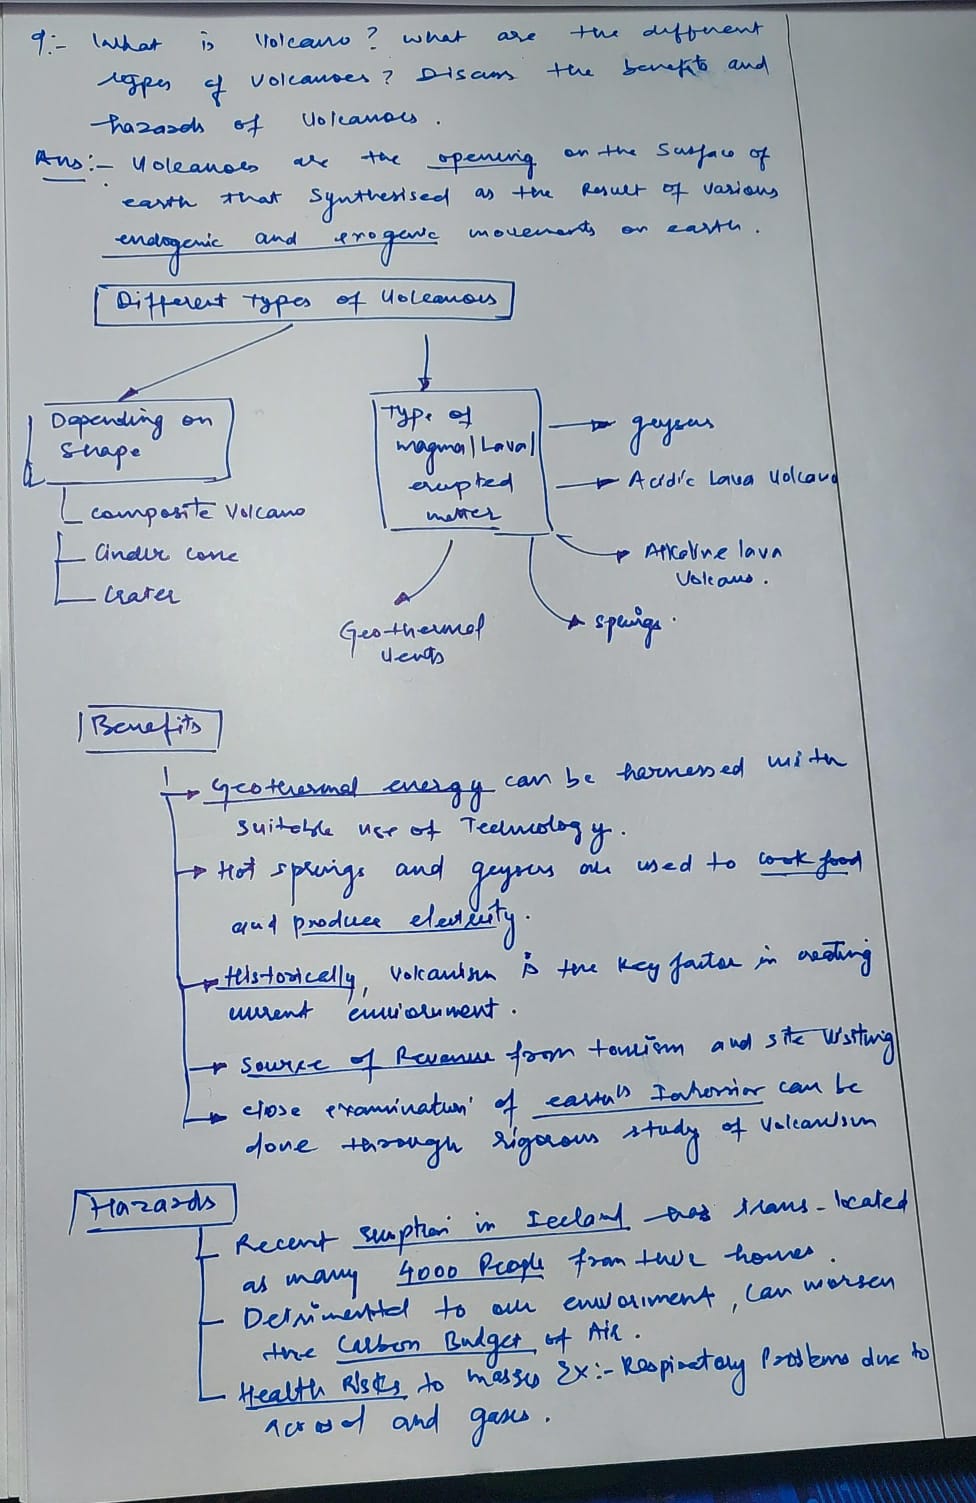 9:- What is Volcano? what are the different
types of Volcanoes? Discuss the benefits and
hazards of Volcanoes.
Ans:- Volcanoes are the opening on the surface of
earth that synthesised as the Result of various
endogenic and exogenic movements on earth.
Different types of Volcanoes
Depending on
shape
composite Volcano
Cinder cone
Crater
Type of
magma/Lava/
erupted
matter
geysers
Acidic Lava Volcano
Alkaline lava
Volcano.
springs.
Geothermal
vents
Benefits
Geothermal energy can be harnessed with
suitable use of Technology.
Hot springs and geysers are used to cook food
and produce electricity.
Historically, Volcanism is the key factor in creating
current enviornment.
Source of Revenue from tourism and site visiting
close examination of earth's Interior can be
done through rigorous study of Volcanism
Hazards
Recent eruption in Iceland has trans-located
as many 4000 People from their homes.
Detrimental to our enviorment, can worsen
the Carbon Budget of Air.
Health Risks to masses Ex:- Respiratory Problems due to
and gases.